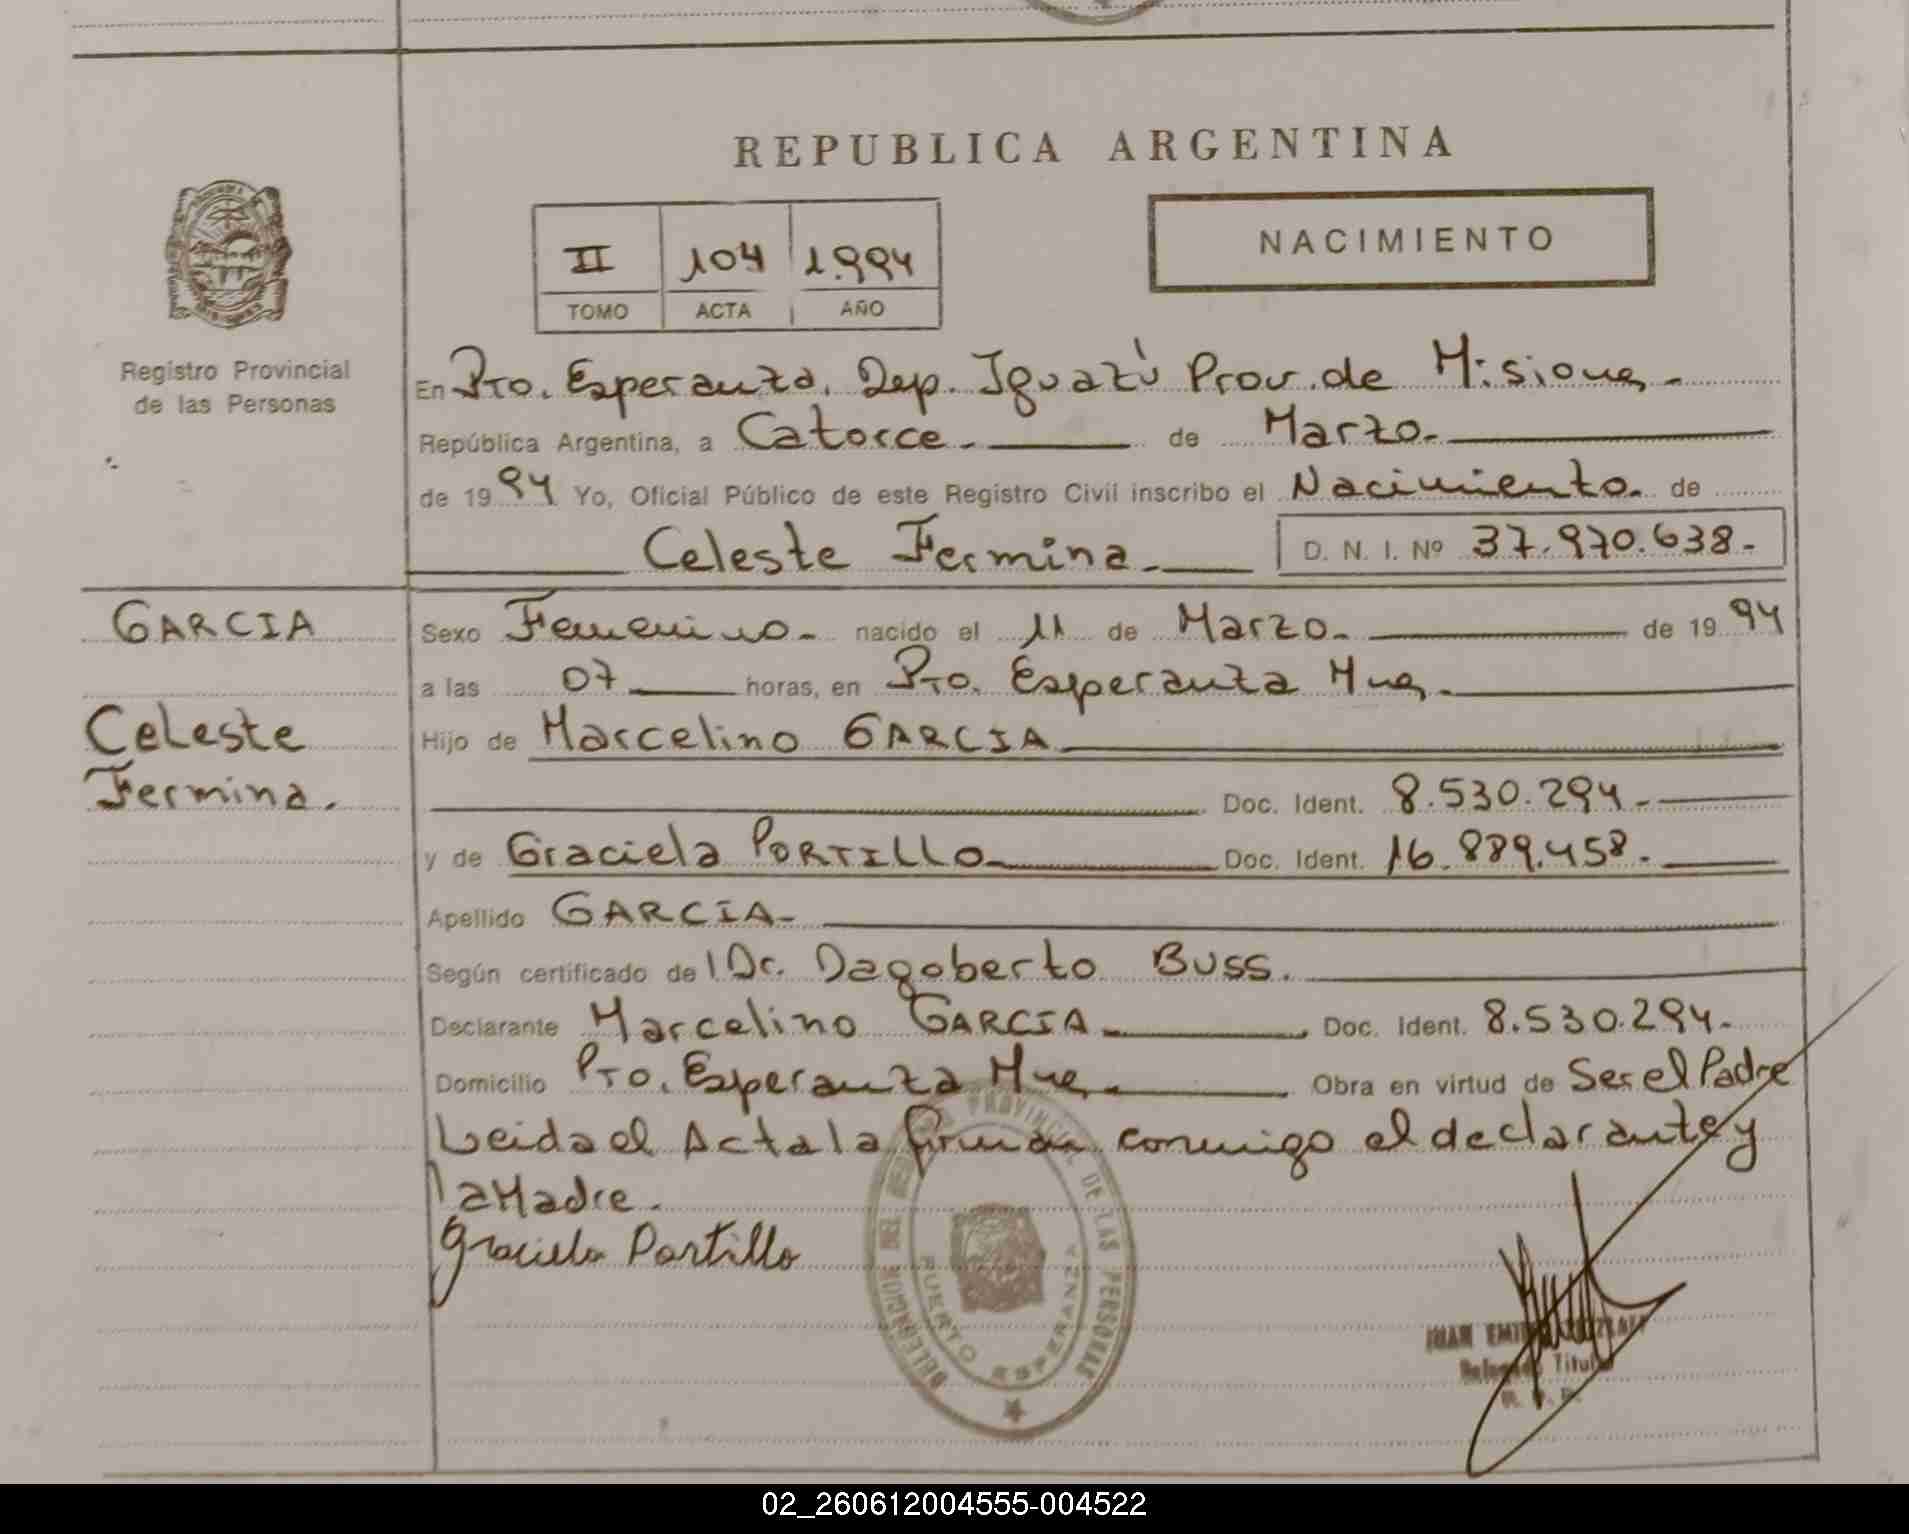 REPUBLICA ARGENTINA
NACIMIENTO
II 104 1.994
TOMO ACTA AÑO
Registro Provincial
de las Personas
En Pto. Esperanza. Dep. Iguazú Prov. de Misiones.-
República Argentina, a Catorce.- de Marzo.-
de 1994 Yo, Oficial Público de este Registro Civil inscribo el Nacimiento. de
Celeste Fermina.- D. N. I. Nº 37.970.638.-
GARCIA
Celeste
Fermina.
Sexo Femenino.- nacido el 11 de Marzo.- de 1994
a las 07 horas, en Pto. Esperanza Mnes.-
Hijo de Marcelino GARCIA
Doc. Ident. 8.530.294.-
y de Graciela PORTILLO Doc. Ident. 16.889.458.-
Apellido GARCIA-
Según certificado de l Dr. Dagoberto Buss.
Declarante Marcelino GARCIA- Doc. Ident. 8.530.294.-
Domicilio Pto. Esperanza Mnes.- Obra en virtud de Ser el Padre
Leida el Acta la firman conmigo el declarante y
la Madre.
Graciela Portillo
PROVINCIAL DE LAS PERSONAS
PUERTO ESPERANZA
JUAN
Titular
02_260612004555-004522